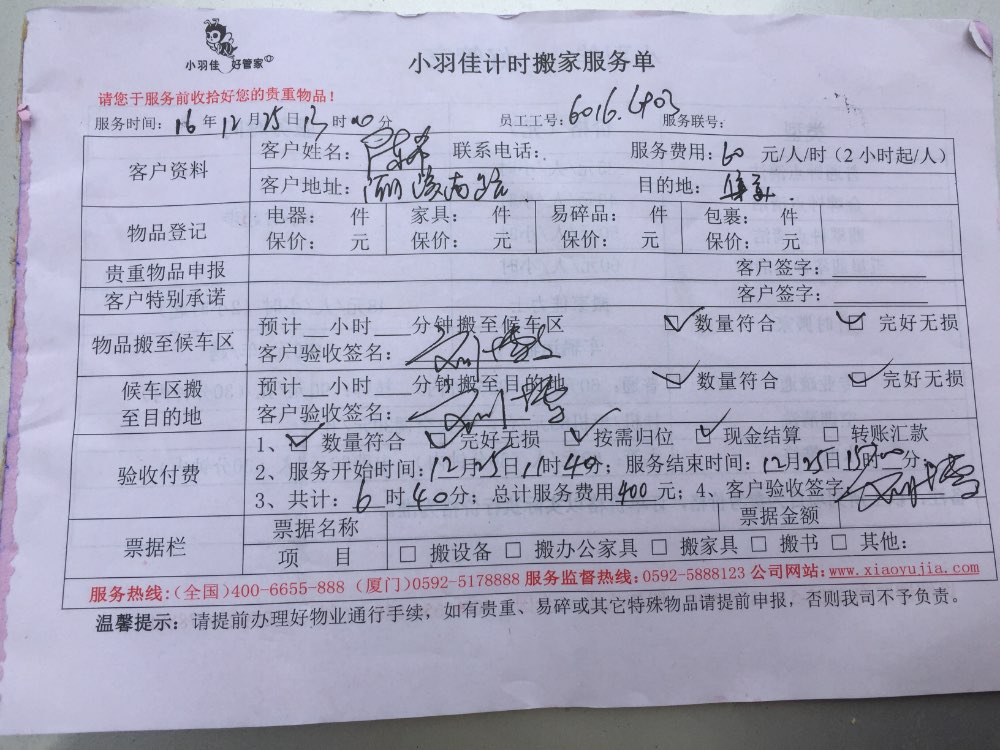 小羽佳 好管家
小羽佳计时搬家服务单
请您于服务前收拾好您的贵重物品！
服务时间：16年12月25日13时00分 员工工号：6016. 服务联号：
客户资料 客户姓名： 联系电话： 服务费用：60 元/人/时（2小时起/人）
客户地址： 目的地：集美
物品登记 电器： 件 家具： 件 易碎品： 件 包裹： 件
保价： 元 保价： 元 保价： 元 保价： 元
贵重物品申报 客户签字：
客户特别承诺 客户签字：
物品搬至候车区 预计 小时 分钟搬至候车区 ☑ 数量符合 ☑ 完好无损
客户验收签名：
候车区搬至目的地 预计 小时 分钟搬至目的地 ☑ 数量符合 ☑ 完好无损
客户验收签名：
验收付费 1、☑ 数量符合 ☑ 完好无损 ☑ 按需归位 ☑ 现金结算 □ 转账汇款
2、服务开始时间：12月25日11时40分；服务结束时间：12月25日15时00分
3、共计：6时40分；总计服务费用400元；4、客户验收签字
票据栏 票据名称 票据金额
项 目 □ 搬设备 □ 搬办公家具 □ 搬家具 □ 搬书 □ 其他：
服务热线：（全国）400-6655-888（厦门）0592-5178888 服务监督热线：0592-5888123 公司网站：www.xiaoyujia.com
温馨提示：请提前办理好物业通行手续，如有贵重、易碎或其它特殊物品请提前申报，否则我司不予负责。